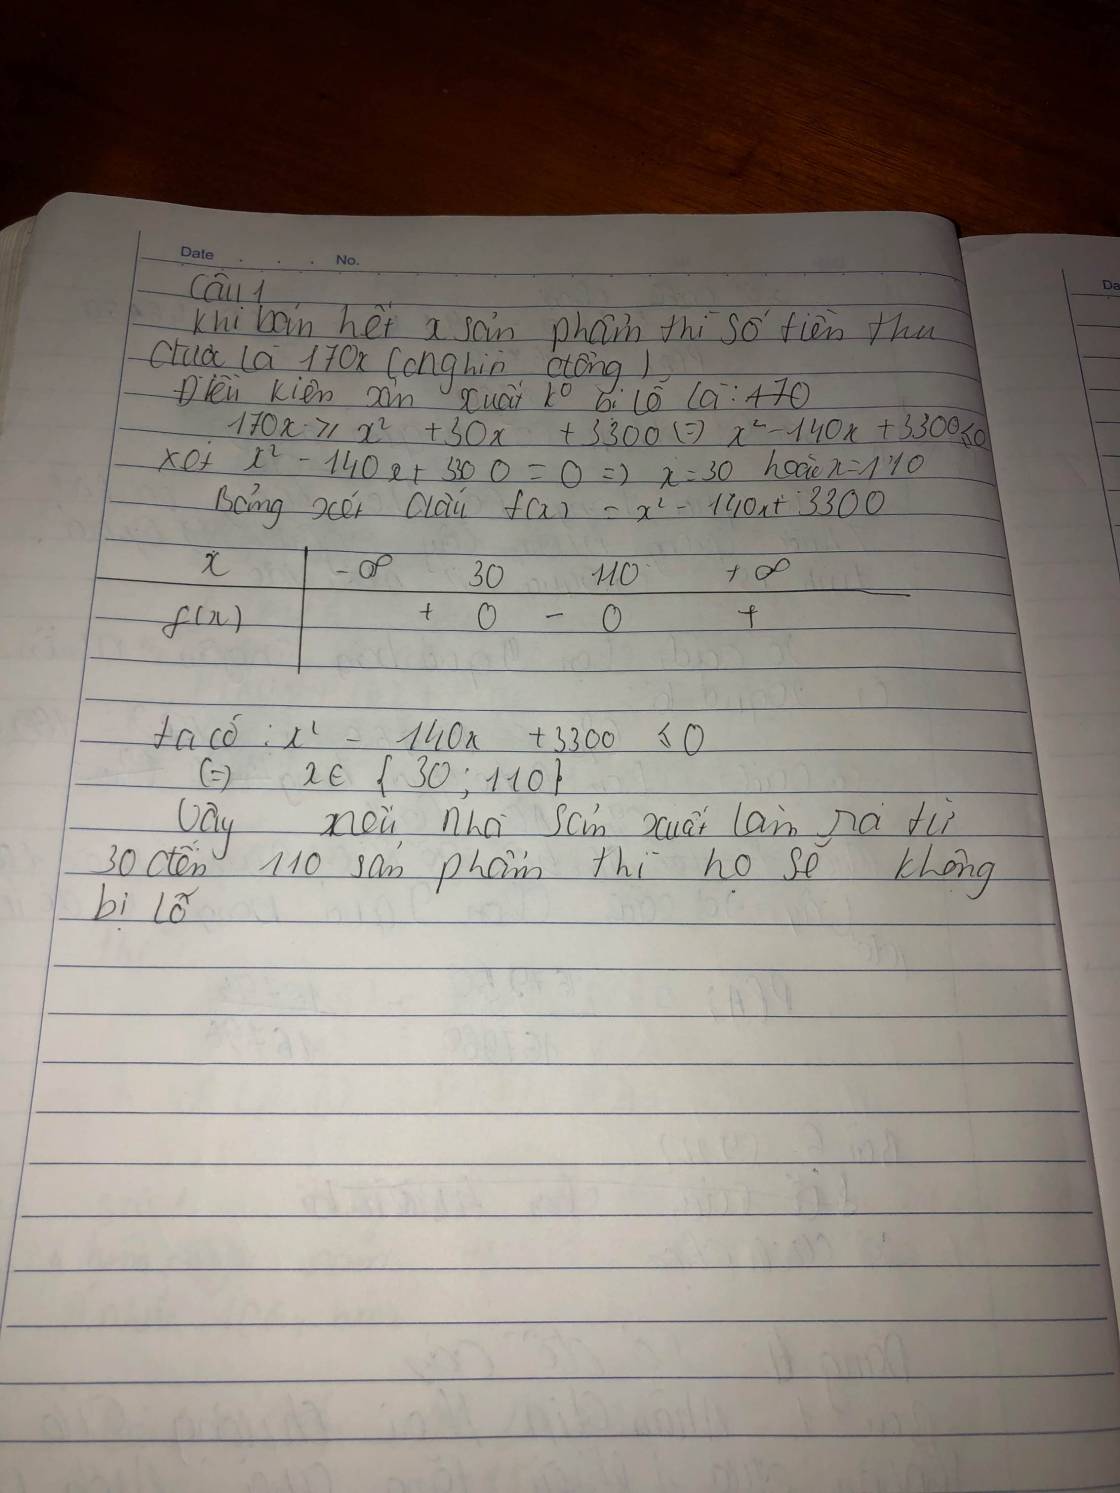 Date . . . No.
Câu 1
Khi bán hết x sản phẩm thì số tiền thu
được là 170x (nghìn đồng)
Điều kiện sản xuất ko bị lỗ là: 170
170x ≥ x² + 30x + 3300 (=) x² - 140x + 3300 ≤ 0
xét x² - 140x + 3300 = 0 => x = 30 hoặc x = 110
Bảng xét dấu f(x) = x² - 140x + 3300
x -∞ 30 110 +∞
f(x) + 0 - 0 +
ta có : x² - 140x + 3300 ≤ 0
(=) x ∈ { 30 ; 110 }
Vậy nếu nhà sản xuất làm ra từ
30 đến 110 sản phẩm thì họ sẽ không
bị lỗ
Da